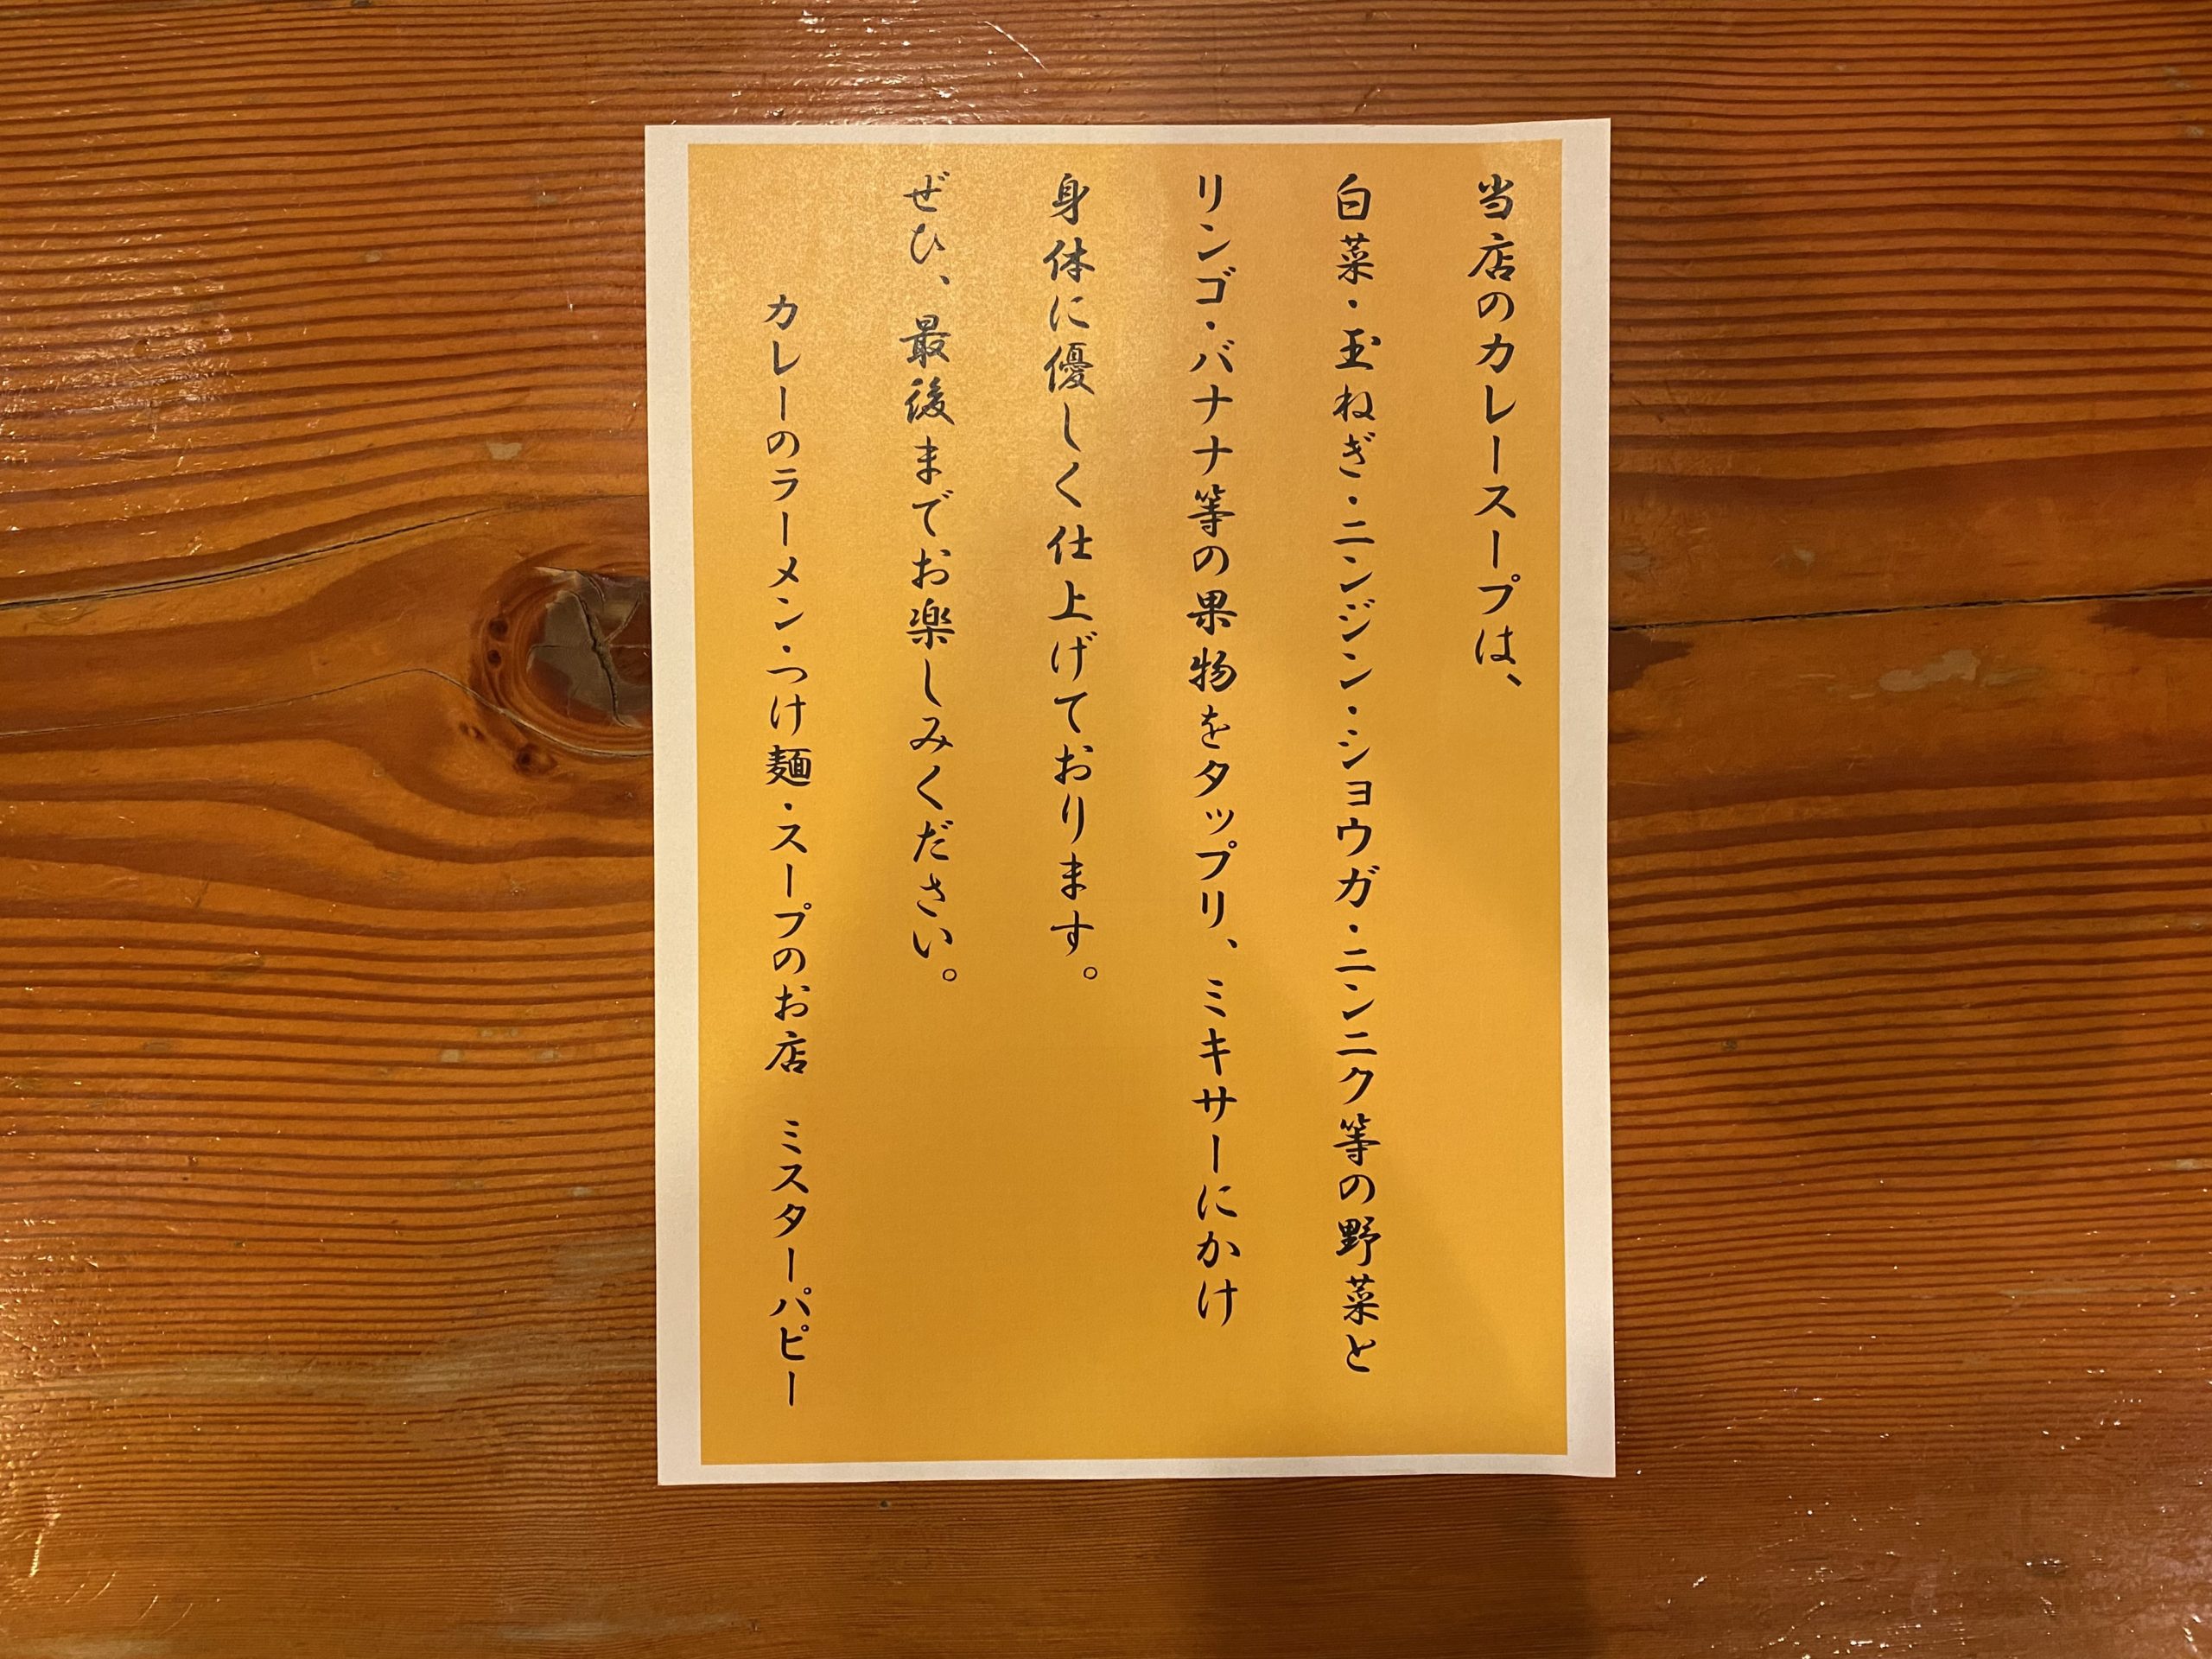 当店のカレースープは、
白菜・玉ねぎ・ニンジン・ショウガ・ニンニク等の野菜と
リンゴ・バナナ等の果物をタップリ、ミキサーにかけ
身体に優しく仕上げております。
ぜひ、最後までお楽しみください。
カレーのラーメン・つけ麺・スープのお店　ミスターパピー